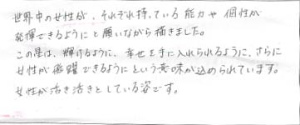 世界中の女性が、それぞれ持っている能力や個性が
発揮できるようにと願いながら描きました。
この星は、輝けるように、幸せを手に入れられるように、さらに
女性が活躍できるようにという意味が込められています。
女性が活き活きとしている姿です。